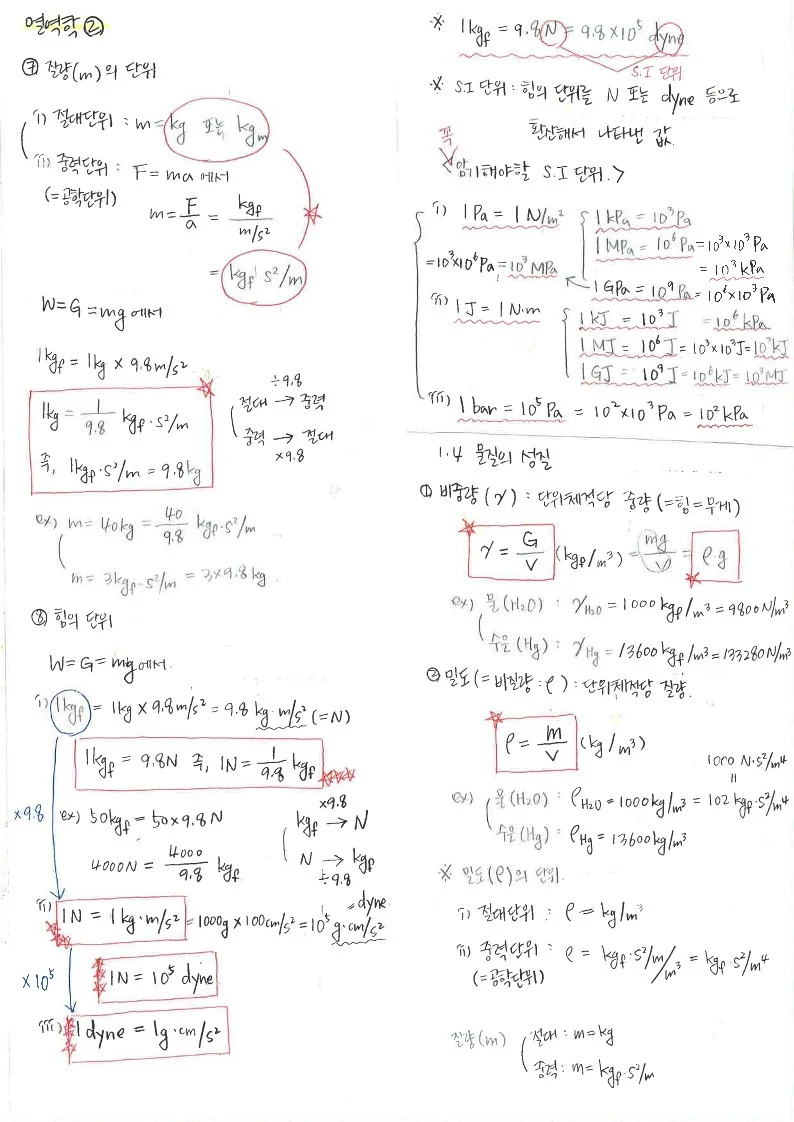 열역학 ②
⑦ 질량(m)의 단위
i) 절대단위 : m = kg 또는 kgm
ii) 중력단위 : F = ma 에서
(=공학단위)
m = F/a = kgf / m/s²
= kgf·s²/m
W = G = mg 에서
1kgf = 1kg × 9.8 m/s²
1kg = 1/9.8 kgf·s²/m
즉, 1kgf·s²/m = 9.8kg
÷9.8
절대 → 중력
중력 → 절대
×9.8
ex) m = 40kg = 40/9.8 kgf·s²/m
m = 3kgf·s²/m = 3×9.8kg
⑧ 힘의 단위
W = G = mg 에서.
i) 1kgf = 1kg × 9.8m/s² = 9.8 kg·m/s² (=N)
1kgf = 9.8N 즉, 1N = 1/9.8 kgf
×9.8
ex) 50kgf = 50×9.8N
4000N = 4000/9.8 kgf
×9.8
kgf → N
N → kgf
÷9.8
ii) 1N = 1kg·m/s² = 1000g × 100cm/s² = 10⁵ g·cm/s²
=dyne
×10⁵
1N = 10⁵ dyne
iii) 1dyne = 1g·cm/s²
※ 1kgf = 9.8N = 9.8×10⁵ dyne
S.I 단위
※ S.I 단위 : 힘의 단위를 N 또는 dyne 등으로
환산해서 나타낸 값.
꼭
<암기해야할 S.I 단위.>
i) 1Pa = 1N/m²
1kPa = 10³Pa
1MPa = 10⁶Pa = 10³×10³Pa
= 10³kPa
1GPa = 10⁹Pa = 10⁶×10³Pa
= 10³×10⁶Pa = 10³MPa
= 10⁶kPa
ii) 1J = 1N·m
1kJ = 10³J
1MJ = 10⁶J = 10³×10³J = 10³kJ
1GJ = 10⁹J = 10⁶kJ = 10³MJ
iii) 1bar = 10⁵Pa = 10²×10³Pa = 10²kPa
1.4 물질의 성질
① 비중량(γ) : 단위체적당 중량(=힘=무게)
γ = G/V (kgf/m³) = mg/V = ρ·g
ex) 물(H₂O) : γH₂O = 1000kgf/m³ = 9800N/m³
수은(Hg) : γHg = 13600kgf/m³ = 133280N/m³
② 밀도(=비질량:ρ) : 단위체적당 질량.
ρ = m/V (kg/m³)
1000 N·s²/m⁴
=
ex) 물(H₂O) : ρH₂O = 1000kg/m³ = 102kgf·s²/m⁴
수은(Hg) : ρHg = 13600kg/m³
※ 밀도(ρ)의 단위.
i) 절대단위 : ρ = kg/m³
ii) 중력단위 : ρ = kgf·s²/m/m³ = kgf·s²/m⁴
(=공학단위)
질량(m)
절대 : m = kg
중력 : m = kgf·s²/m